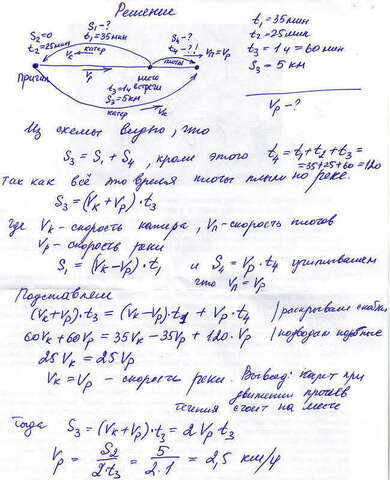 Решение
S₁ - ?
t₁ = 35мин
S₂=0
t₂=25мин
катер
Vк
S₄ - ?
t₄ - ?!
плоты
Vп = Vр
Причал
Vр
место встречи
t₃ = 1ч
S₃ = 5км
катер
Vк
t₁ = 35мин
t₂ = 25мин
t₃ = 1ч = 60мин
S₃ = 5 км
Vр - ?
Из схемы видно, что
S₃ = S₁ + S₄ , кроме этого t₄ = t₁ + t₂ + t₃ =
= 35+25+60 = 120
так как всё это время плоты плыли по реке.
S₃ = (Vк + Vр) · t₃
где Vк - скорость катера, Vп - скорость плотов
Vр - скорость реки
S₁ = (Vк - Vр) · t₁ и S₄ = Vр · t₄ учитываем
что Vп = Vр
Подставляем
(Vк + Vр) · t₃ = (Vк - Vр) · t₁ + Vр · t₄ | раскрываем скобки
60Vк + 60Vр = 35Vк - 35Vр + 120 · Vр | подобные
25Vк = 25Vр
Vк = Vр - скорость реки. Вывод: катер при
движении против
течения стоит на месте
Тогда S₃ = (Vк + Vр) · t₃ = 2 Vр t₃
Vр = S₂ / 2t₃ = 5 / 2·1 = 2,5 км/ч